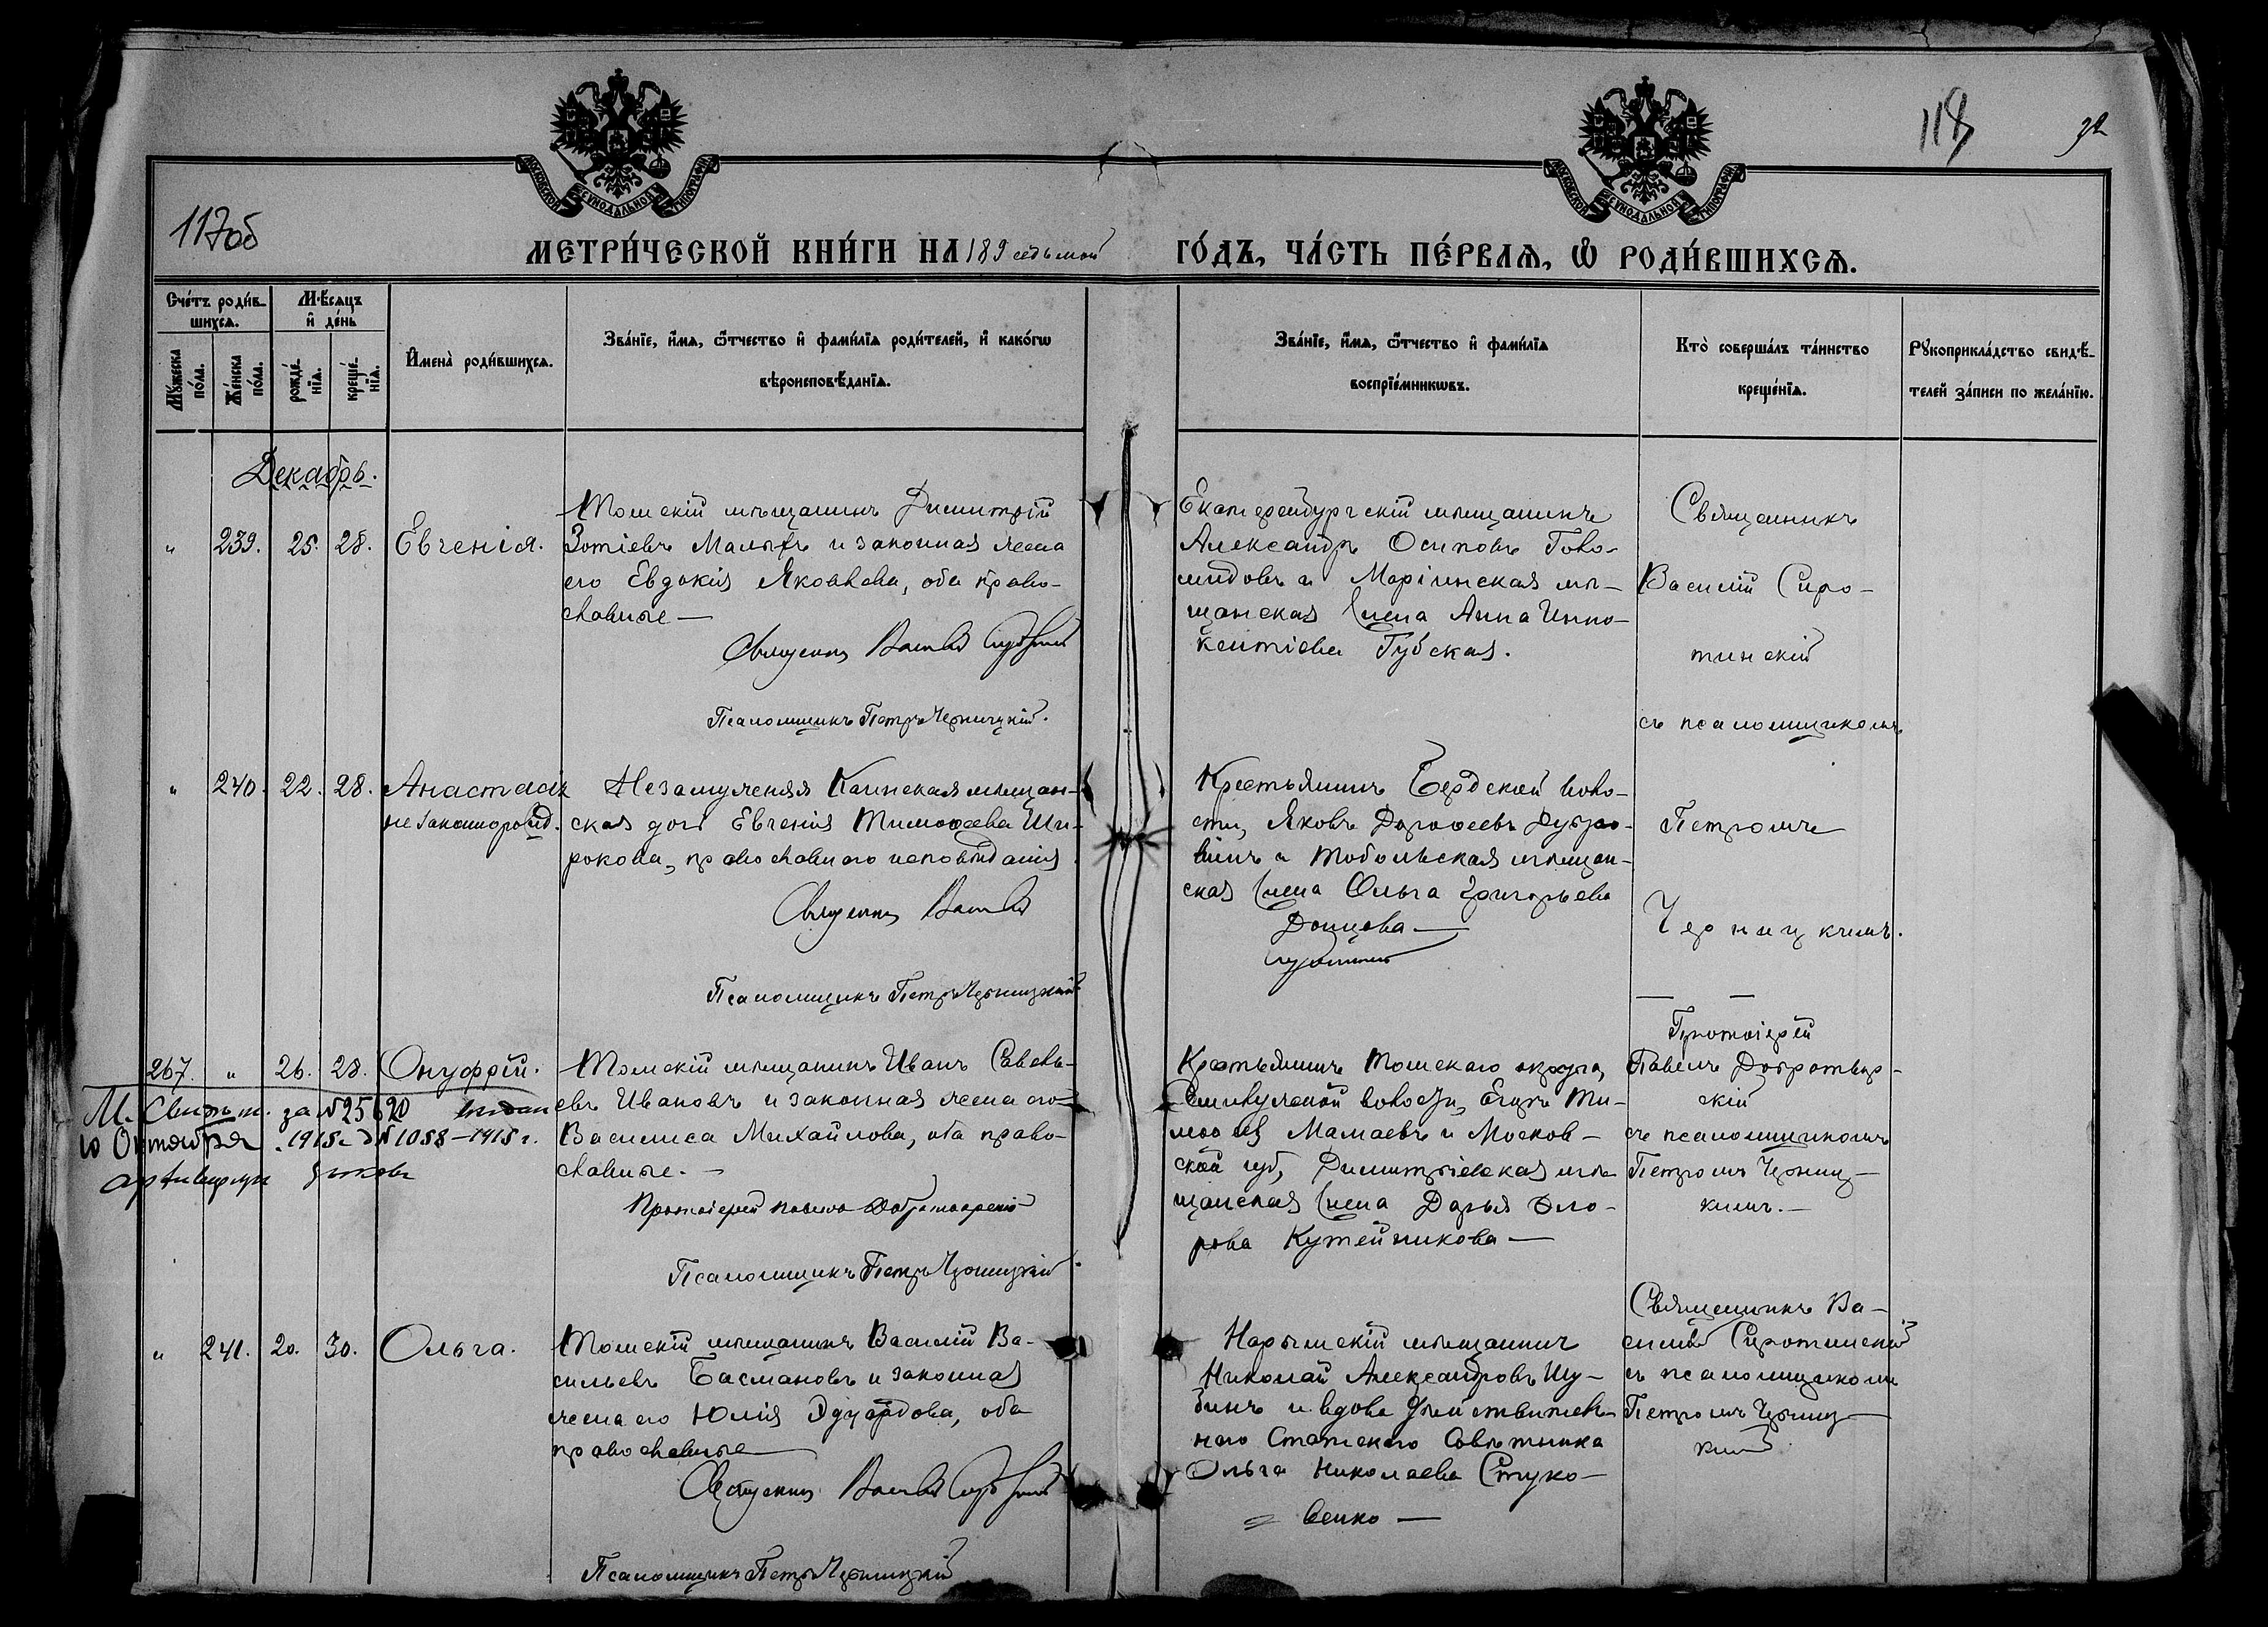 118
117об
МОСКОВСКОЙ СУНОДАЛЬНОЙ ТИПОГРАФІИ
МОСКОВСКОЙ СУНОДАЛЬНОЙ ТИПОГРАФІИ
МЕТРИ́ЧЕСКОЙ КНИ́ГИ НА 189 седьмой ГО́ДЪ, ЧА́СТЬ ПЕ́РВАЯ, Ѡ РОДИ́ВШИХСЯ.
Сче́тъ роди́в-
шихся.
Мѣ́сяцъ
и҆ де́нь
Му́жеска по́ла.
Же́нска по́ла.
рожде́-
нїя.
креще́-
нїя.
И҆мена̀ роди́вшихся.
Зва́нїе, и҆́мя, ѻ҆́тчество и҆ фами́лїя роди́телей, и҆ како́гѡ
вѣроисповѣ́данїя.
Зва́нїе, и҆́мя, ѻ҆́тчество и҆ фами́лїя
воспрїе́мникѡвъ.
Кто̀ соверша́лъ та́инство
креще́нїя.
Рꙋкоприкла́дство свидѣ́-
телей за́писи по жела́нїю.
Декабрь.
" 239. 25. 28. Евгенія.
Томскій мѣщанинъ Димитрій
Зотіевъ Малыхъ и законная жена
его Евдокія Яковлева, оба право-
славные —
Священникъ Василій Сиротинскій
Псаломщикъ Петръ Черницкій.
Екатеринбургскій мѣщанинъ
Александръ Осиповъ Голо-
мидовъ и Маріинская мѣ-
щанская жена Анна Инно-
кентіева Губская.
Священникъ
Василій Сиро-
тинскій
съ псаломщикомъ
Петромъ
Черницкимъ.
" 240. 22. 28. Анастасія
незаконнорожд.
Незамужняя Каинская мѣщан-
ская дочь Евгенія Тимоѳеева Ши-
рокова, православнаго исповѣданія
Священникъ Василій
Псаломщикъ Петръ Черницкій
Крестьянинъ Бердской воло-
сти, Яковъ Дороѳеевъ Дубро-
винъ и Тобольская мѣщан-
ская жена Ольга Григорьева
Донцова —
Сиротинскій
267. " 26. 28. Онуфрій.
М. Свидѣт. за № 25620 выдан
10 Октября 1915 г. д № 1058 – 1915 г.
Томскій мѣщанинъ Иванъ Савель-
евъ Ивановъ и законная жена его
Василиса Михайлова, оба право-
славные. —
Протоіерей Павелъ Добротворскій
Псаломщикъ Петръ Черницкій
Крестьянинъ Томскаго округа,
волости, Егоръ Ти-
моѳеевъ Мамаевъ и Москов-
ской губ, Димитріевская мѣ-
щанская жена Дарья Фло-
рова Кутейникова —
Протоіерей
Павелъ Добротвор-
скій
съ псаломщикомъ
Петромъ Черниц-
кимъ. —
" 241. 20. 30. Ольга.
Томскій мѣщанинъ Василій Ва-
сильевъ Басмановъ и законная
жена его Юлія Эдуардова, оба
православные
Священникъ Василій Сиротинскій
Псаломщикъ Петръ Черницкій
Нарымскій мѣщанинъ
Николай Александровъ Шу-
бинъ и вдова Дѣйствитель-
наго Статскаго Совѣтника
Ольга Николаева Стуко-
венко —
Священникъ Ва-
силій Сиротинскій
съ псаломщикомъ
Петромъ Черниц-
кимъ